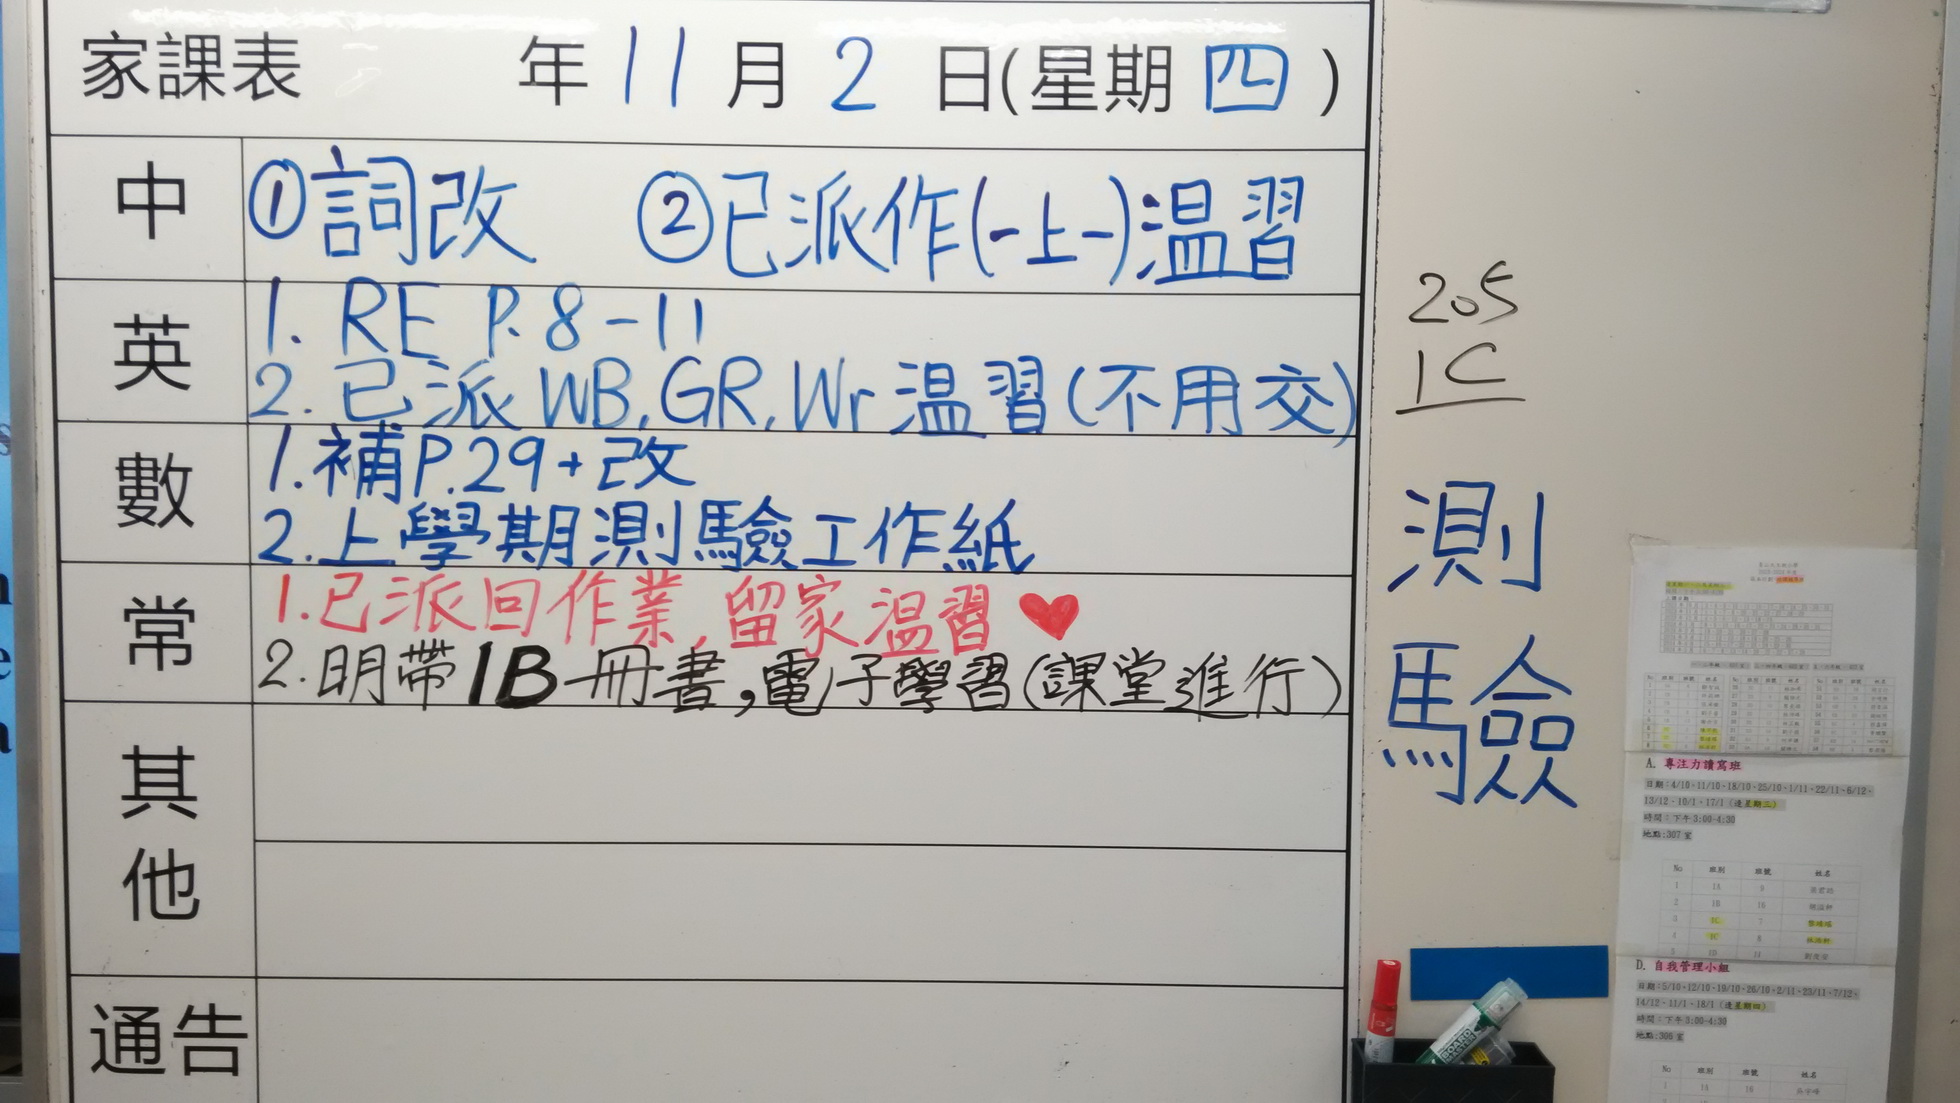 家課表 年 11 月 2 日(星期 四 )
中 ①詞改 ②已派作(一上一)温習
英 1. RE P. 8-11
2. 已派 WB, GR, Wr 温習(不用交)
數 1. 補P.29+改
2. 上學期測驗工作紙
常 1. 已派回作業, 留家温習
2. 明帶1B冊書, 電子學習(課堂進行)
其他
通告
205
1C
測驗
A. 專注力讀寫班
日期:4/10、11/10、18/10、25/10、1/11、22/11、6/12、
13/12、10/1、17/1 (逢星期三)
時間:下午 3:00-4:30
地點:307 室
No 班別 班號 姓名
1 1A 9
2 1B 16
3 1C 7
4 1C 8
5 1D 11
D. 自我管理小組
日期:5/10、12/10、19/10、26/10、2/11、23/11、7/12、
14/12、11/1、18/1 (逢星期四)
時間:下午 3:00-4:30
地點:306 室
No 班別 班號 姓名
1 1A 16
BOARD MASTER